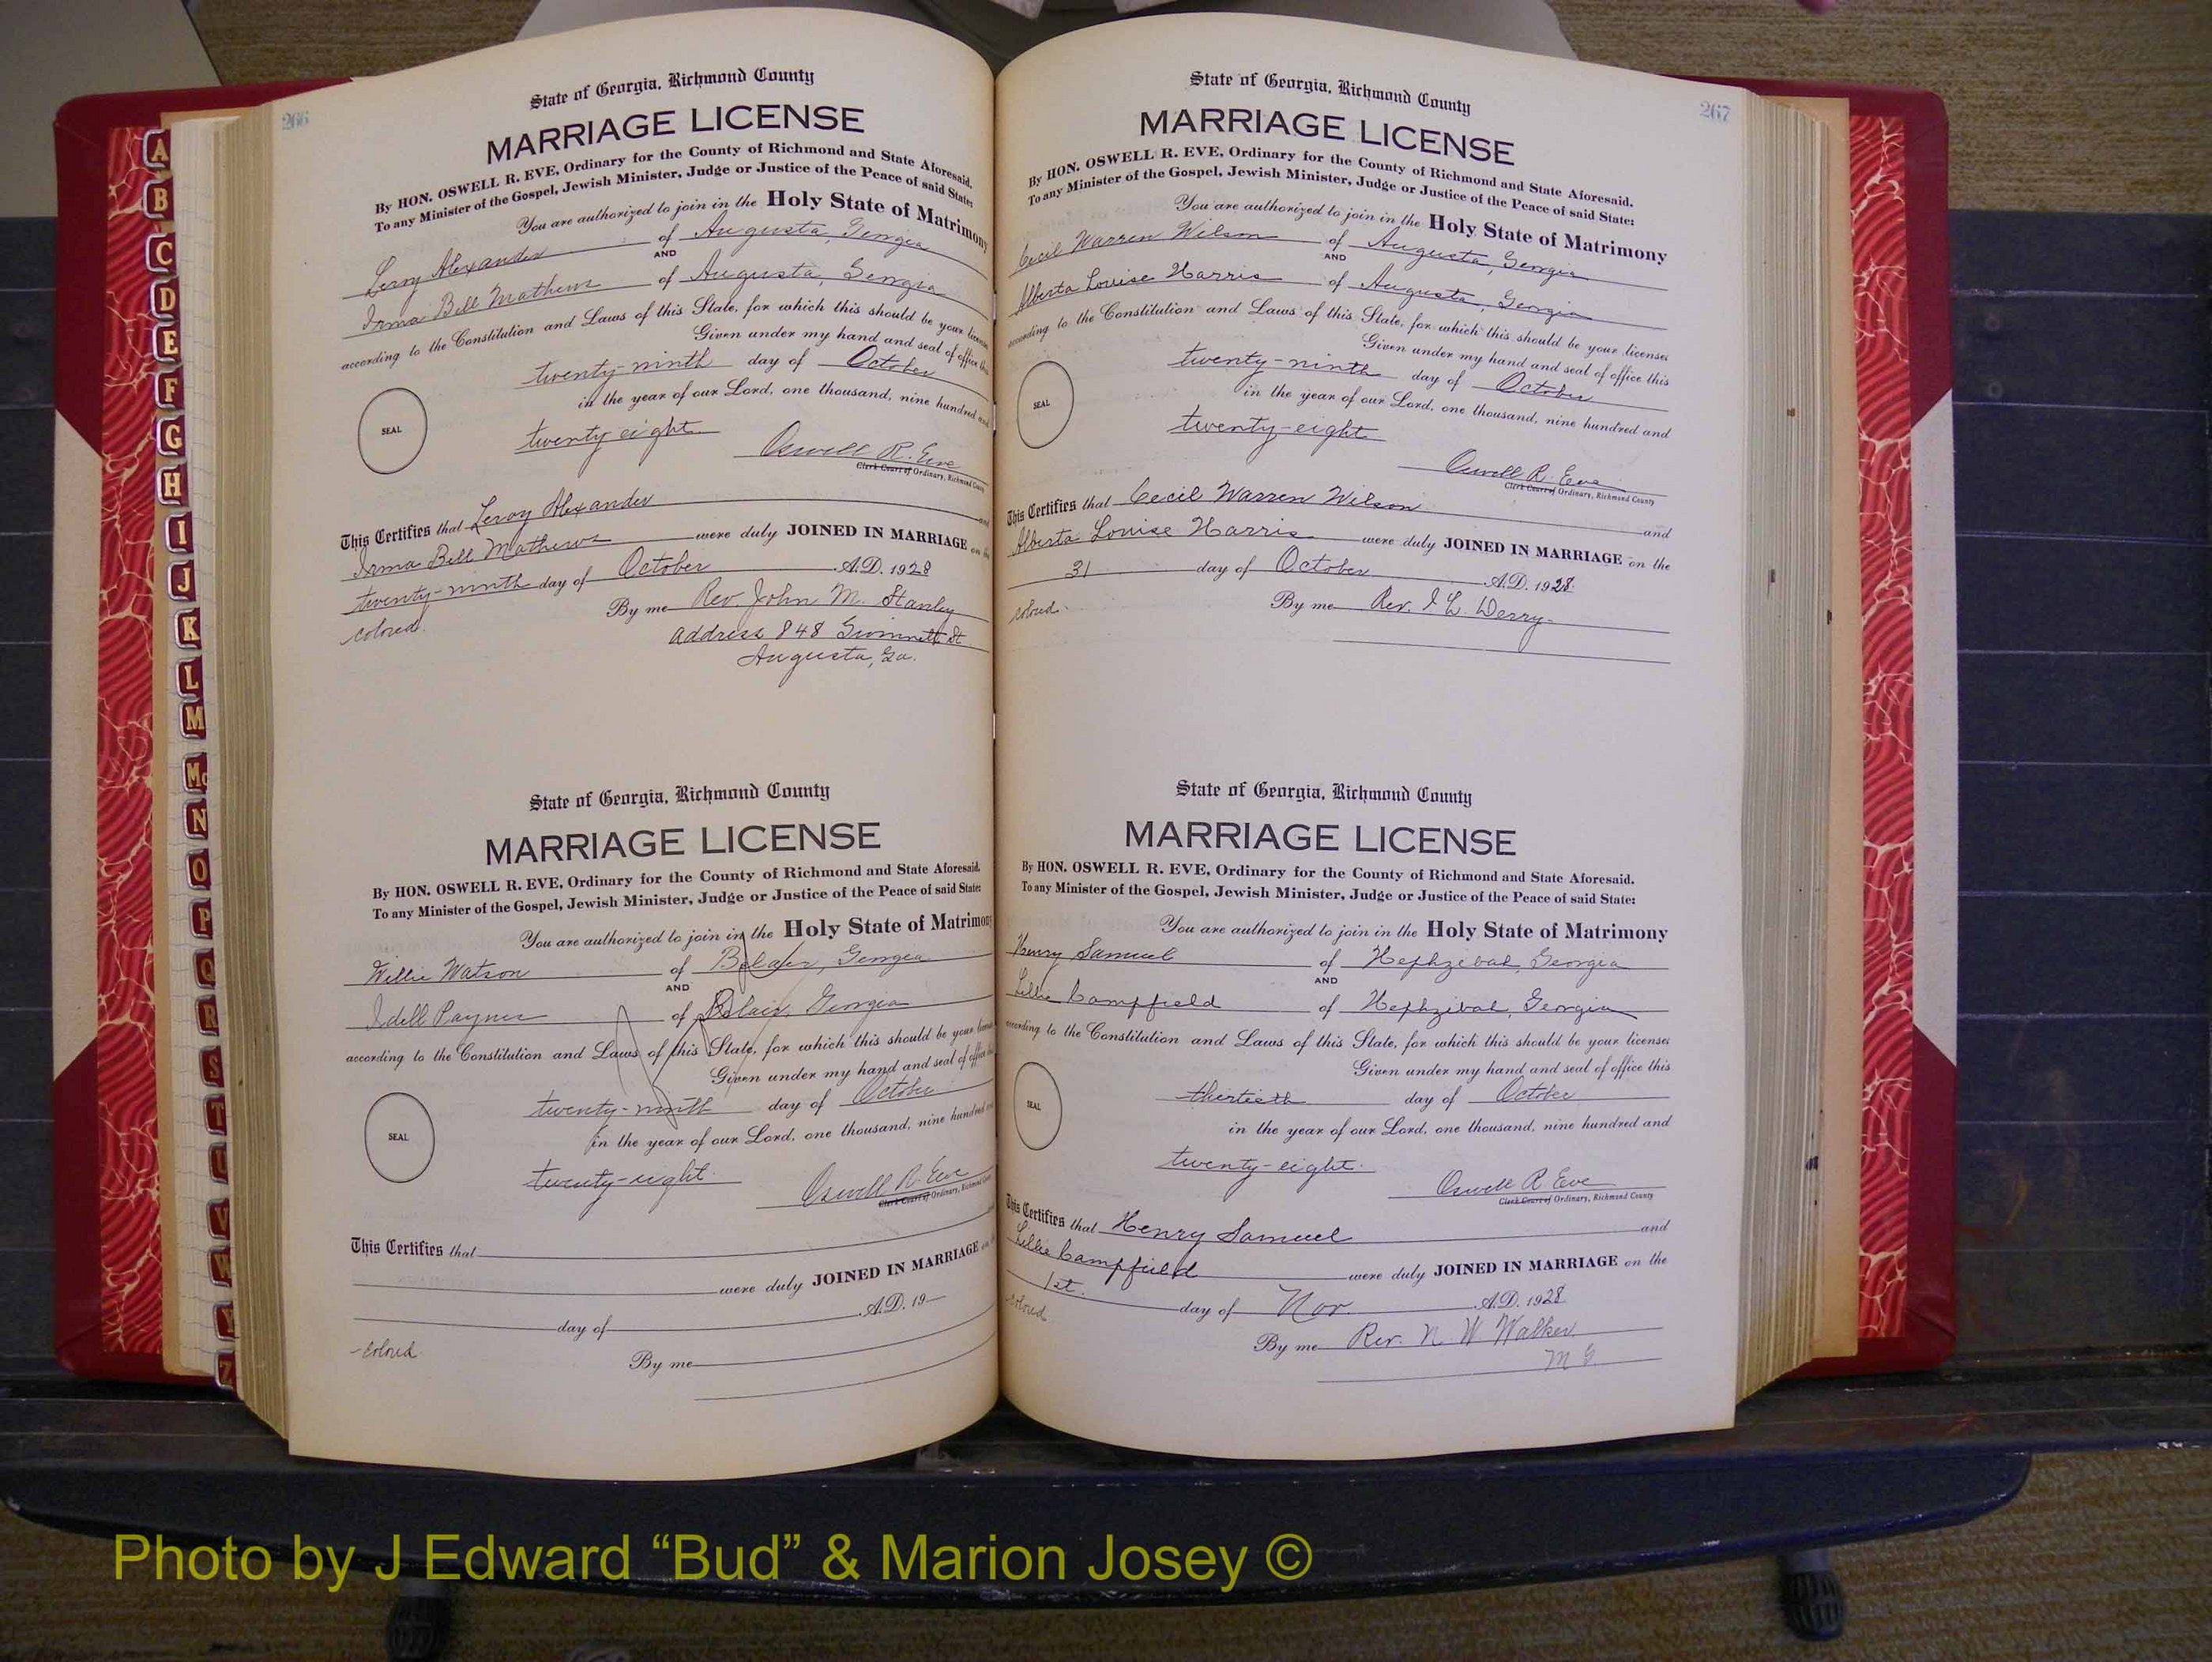 266
State of Georgia, Richmond County
MARRIAGE LICENSE
By HON. OSWELL R. EVE, Ordinary for the County of Richmond and State Aforesaid.
To any Minister of the Gospel, Jewish Minister, Judge or Justice of the Peace of said State:
You are authorized to join in the Holy State of Matrimony
Leroy Alexander of Augusta, Georgia
AND
Irma Bell Mathews of Augusta, Georgia
according to the Constitution and Laws of this State, for which this should be your license
Given under my hand and seal of office this
twenty-ninth day of October
in the year of our Lord, one thousand, nine hundred and
SEAL
twenty eight
Oswell R. Eve
Clerk Court of Ordinary, Richmond County
This Certifies that Leroy Alexander and
Irma Bell Mathews were duly JOINED IN MARRIAGE on the
twenty-ninth day of October A.D. 1928
colored. By me Rev. John M. Stanley
address 848 Gwinnett St
Augusta, Ga.
State of Georgia, Richmond County
MARRIAGE LICENSE
By HON. OSWELL R. EVE, Ordinary for the County of Richmond and State Aforesaid.
To any Minister of the Gospel, Jewish Minister, Judge or Justice of the Peace of said State:
You are authorized to join in the Holy State of Matrimony
Willie Watson of Belair, Georgia
AND
Idell Payner of Belair, Georgia
according to the Constitution and Laws of this State, for which this should be your license
Given under my hand and seal of office this
twenty-ninth day of October
in the year of our Lord, one thousand, nine hundred and
SEAL
twenty-eight.
Oswell R. Eve
Clerk Court of Ordinary, Richmond County
This Certifies that
were duly JOINED IN MARRIAGE on the
day of A.D. 19—
colored By me
267
State of Georgia, Richmond County
MARRIAGE LICENSE
By HON. OSWELL R. EVE, Ordinary for the County of Richmond and State Aforesaid.
To any Minister of the Gospel, Jewish Minister, Judge or Justice of the Peace of said State:
You are authorized to join in the Holy State of Matrimony
Cecil Warren Wilson of Augusta, Georgia
AND
Alberta Louise Harris of Augusta, Georgia
according to the Constitution and Laws of this State, for which this should be your licenses
Given under my hand and seal of office this
twenty-ninth day of October
in the year of our Lord, one thousand, nine hundred and
SEAL
twenty-eight
Oswell R. Eve
Clerk Court of Ordinary, Richmond County
This Certifies that Cecil Warren Wilson and
Alberta Louise Harris were duly JOINED IN MARRIAGE on the
31 day of October A.D. 1928.
colored. By me Rev. Derry
State of Georgia, Richmond County
MARRIAGE LICENSE
By HON. OSWELL R. EVE, Ordinary for the County of Richmond and State Aforesaid.
To any Minister of the Gospel, Jewish Minister, Judge or Justice of the Peace of said State:
You are authorized to join in the Holy State of Matrimony
Henry Samuel of Hephzibah, Georgia
AND
Lillie Campfield of Hephzibah, Georgia
according to the Constitution and Laws of this State, for which this should be your licenses
Given under my hand and seal of office this
thirtieth day of October
in the year of our Lord, one thousand, nine hundred and
SEAL
twenty-eight.
Oswell R Eve
Clerk Court of Ordinary, Richmond County
This Certifies that Henry Samuel and
Lillie Campfield were duly JOINED IN MARRIAGE on the
1st. day of Nov. A.D. 1928
colored
By me Rev. N W Walker
M G.
A
B
C
D
E
F
G
H
I
J
K
L
M
Mc
N
O
P
Q
R
S
T
U
V
W
Y
Z
Photo by J Edward “Bud” & Marion Josey ©